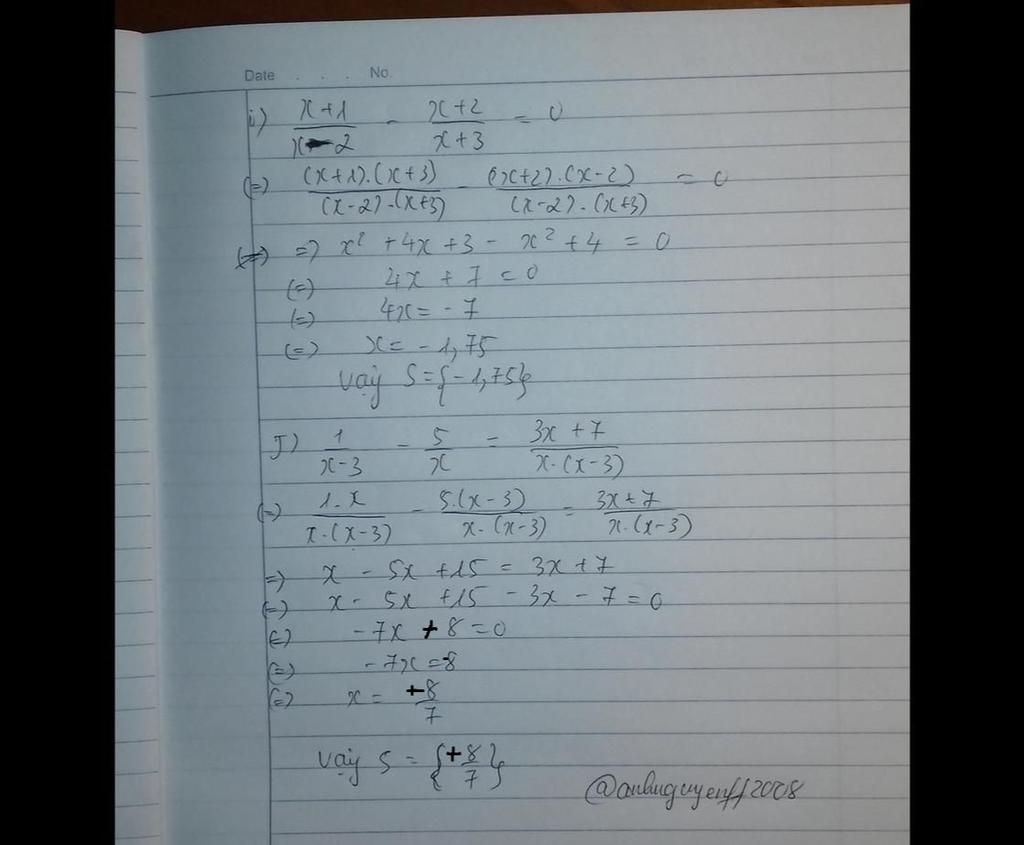 Date . . . No.
i) \frac{x+1}{x-2} - \frac{x+2}{x+3} = 0
(=) \frac{(x+1).(x+3)}{(x-2).(x+3)} - \frac{(x+2).(x-2)}{(x-2).(x+3)} = 0
=) x² + 4x + 3 - x² + 4 = 0
(=) 4x + 7 = 0
(=) 4x = -7
(=) x = -1,75
Vậy S = {-1,75}
J) \frac{1}{x-3} - \frac{5}{x} = \frac{3x+7}{x.(x-3)}
(=) \frac{1.x}{x.(x-3)} - \frac{5.(x-3)}{x.(x-3)} = \frac{3x+7}{x.(x-3)}
=) x - 5x + 15 = 3x + 7
(=) x - 5x + 15 - 3x - 7 = 0
(=) -7x + 8 = 0
(=) -7x = -8
(=) x = \frac{+8}{7}
Vậy S = {+\frac{8}{7}}
@anhnguyenff2008